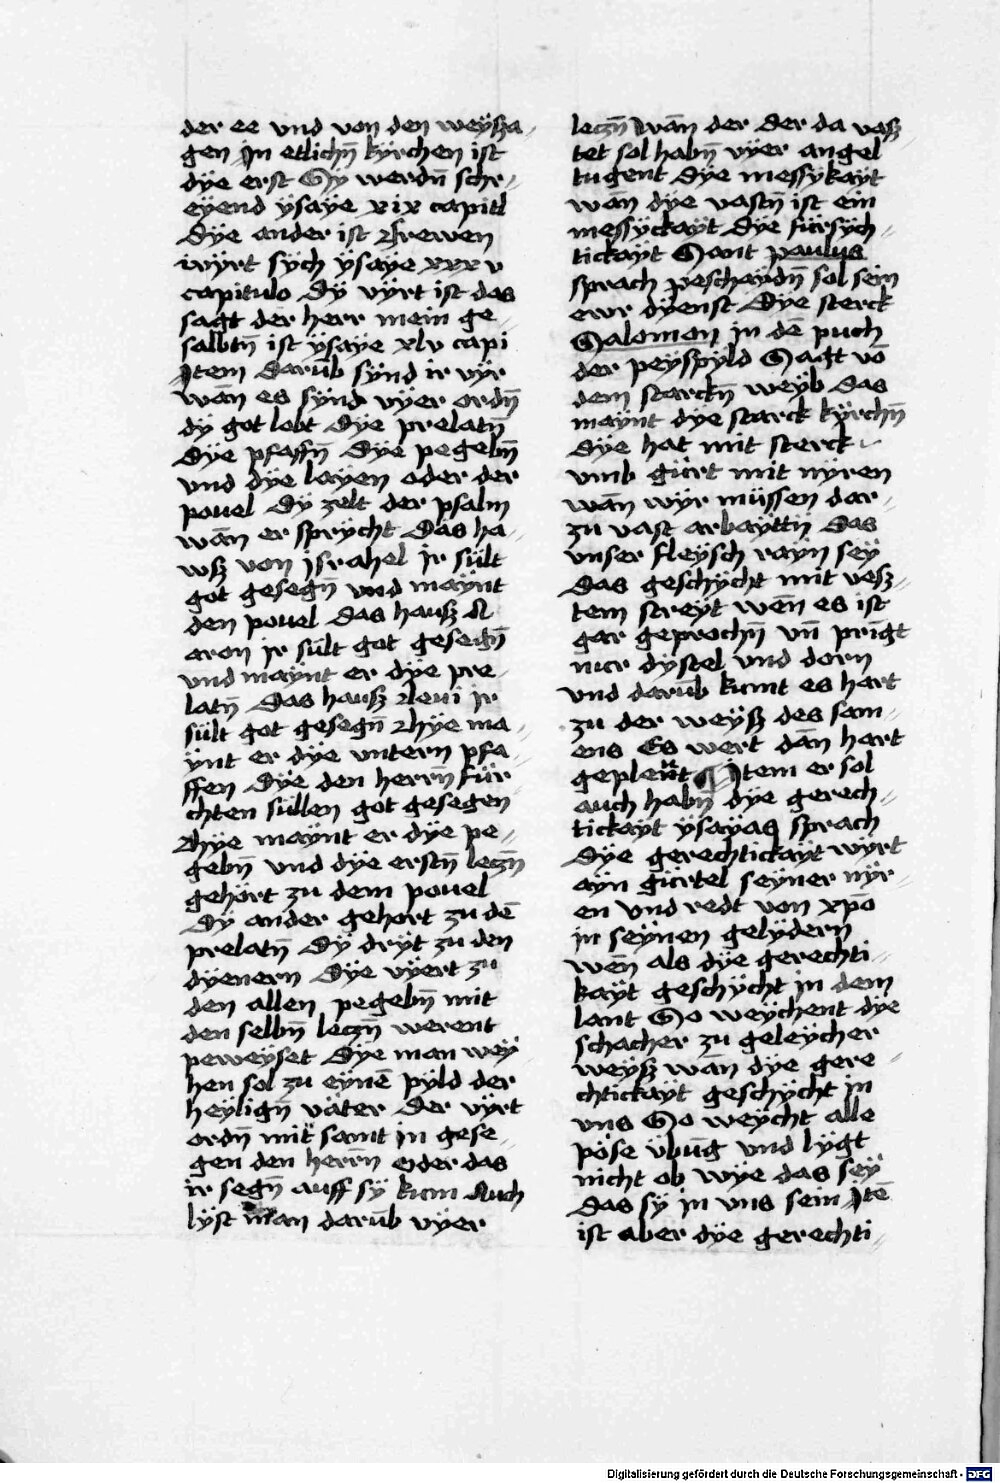 der ee vnd von den weÿssa⸗
gen Jn etlichn̄ kÿrchen ist
dÿe erst Sÿ werdn̄ schr⸗
eÿend ÿsaÿe xix capitl
Dÿe ander ist Erewen
wÿrt sÿch ÿsaÿe xxxv
capitulo Dÿ vÿrt ist das
sagt der herr mein ge⸗
salbtn̄ ist ÿsaÿe xlv capi
Jtem Darūb sÿnd ir vÿr
wān es sÿnd vÿer ordn̄
dÿ got lobt Dÿe prelatn̄
Dÿe pfaffn̄ Dÿe pegebn̄
vnd dÿe layen oder der
pouel Dÿ zelt der psalm
wān er sprÿcht Das ha⸗
wß von jsrahel Jr sült
got gesegn̄ vnd maÿnt
den pouel Das hauß A
aron jr sült got gesegn̄
vnd maÿnt er dÿe pre⸗
latn̄ Das hauß leui jr
sült got gesegn̄ hÿe ma⸗
ÿnt er dÿe vntern pfa⸗
ffen Dÿe den herrn̄ für⸗
chten süllen got gesegen
hÿe maÿnt er dÿe pe⸗
gebn̄ vnd dÿe erstn̄ leczn̄
gehört zu dem pouel
Dÿ ander gehort zu dē
prelatn̄ Dÿ drÿt zu den
dÿenern Dÿe vÿert zu
den allen pegebn̄ mit
den selbn̄ leczn̄ werent
peweÿset Dÿe man weÿ⸗
hen sol zu eÿnē pÿld der
heÿlign̄ väter Der vÿrt
ordn̄ mit samt jn gese⸗
gen den herrn̄ Oder das
ir segn̄ auff sÿ kum Auch
lÿst man darūb vÿer
leczn̄ Wān der Der da vaß⸗
tet sol habn̄ vÿer angel
tugent Dÿe messÿkaÿt
wān dÿe vastn̄ ist ein
messÿckaÿt Dÿe fürsÿch⸗
tickaÿt Sant paulus
sprach peschaÿdn̄ sol sein
ewr dÿenst Dÿe sterck
Salomon in dē puch
der peÿspÿld Sagt vō
dem starckn̄ weÿb Das
maÿnt dÿe starck kÿrchn̄
Dÿe hat mit sterck
vmb gürt mit nÿren
wān wÿr müssen dar⸗
zu vast arbaÿttn̄ Das
vnser fleÿsch raÿn seÿ
das geschÿcht mit veß⸗
tem streÿt wēn es ist
gar geprochn̄ vn̄ pringt
nur dÿstel vnd dorn
vnd darūb kumt es hart
zu der weÿß des sam⸗
ens Es wert dān hart
gepleüt ¶ Jtem er sol
auch habn̄ dÿe gerech⸗
tickaÿt ÿsaÿas sprach
Dÿe gerechtickaÿt wÿrt
aÿn gürtel seÿner nÿr⸗
en vnd redt von xp̄o
in seÿnen gelÿdern
wēn als dÿe gerechti⸗
kaÿt geschÿcht in dem
lant So weÿchent dÿe
schacher zu geleÿcher
weÿß wān dÿe gere⸗
chtickaÿt geschÿcht in
vns So weÿcht alle
pöse übūg vnd lÿgt
nicht ob wÿe das seÿ
das sÿ in vns sein Jtē
ist aber dÿe gerechti⸗
Digitalisierung gefördert durch die Deutsche Forschungsgemeinschaft - DFG